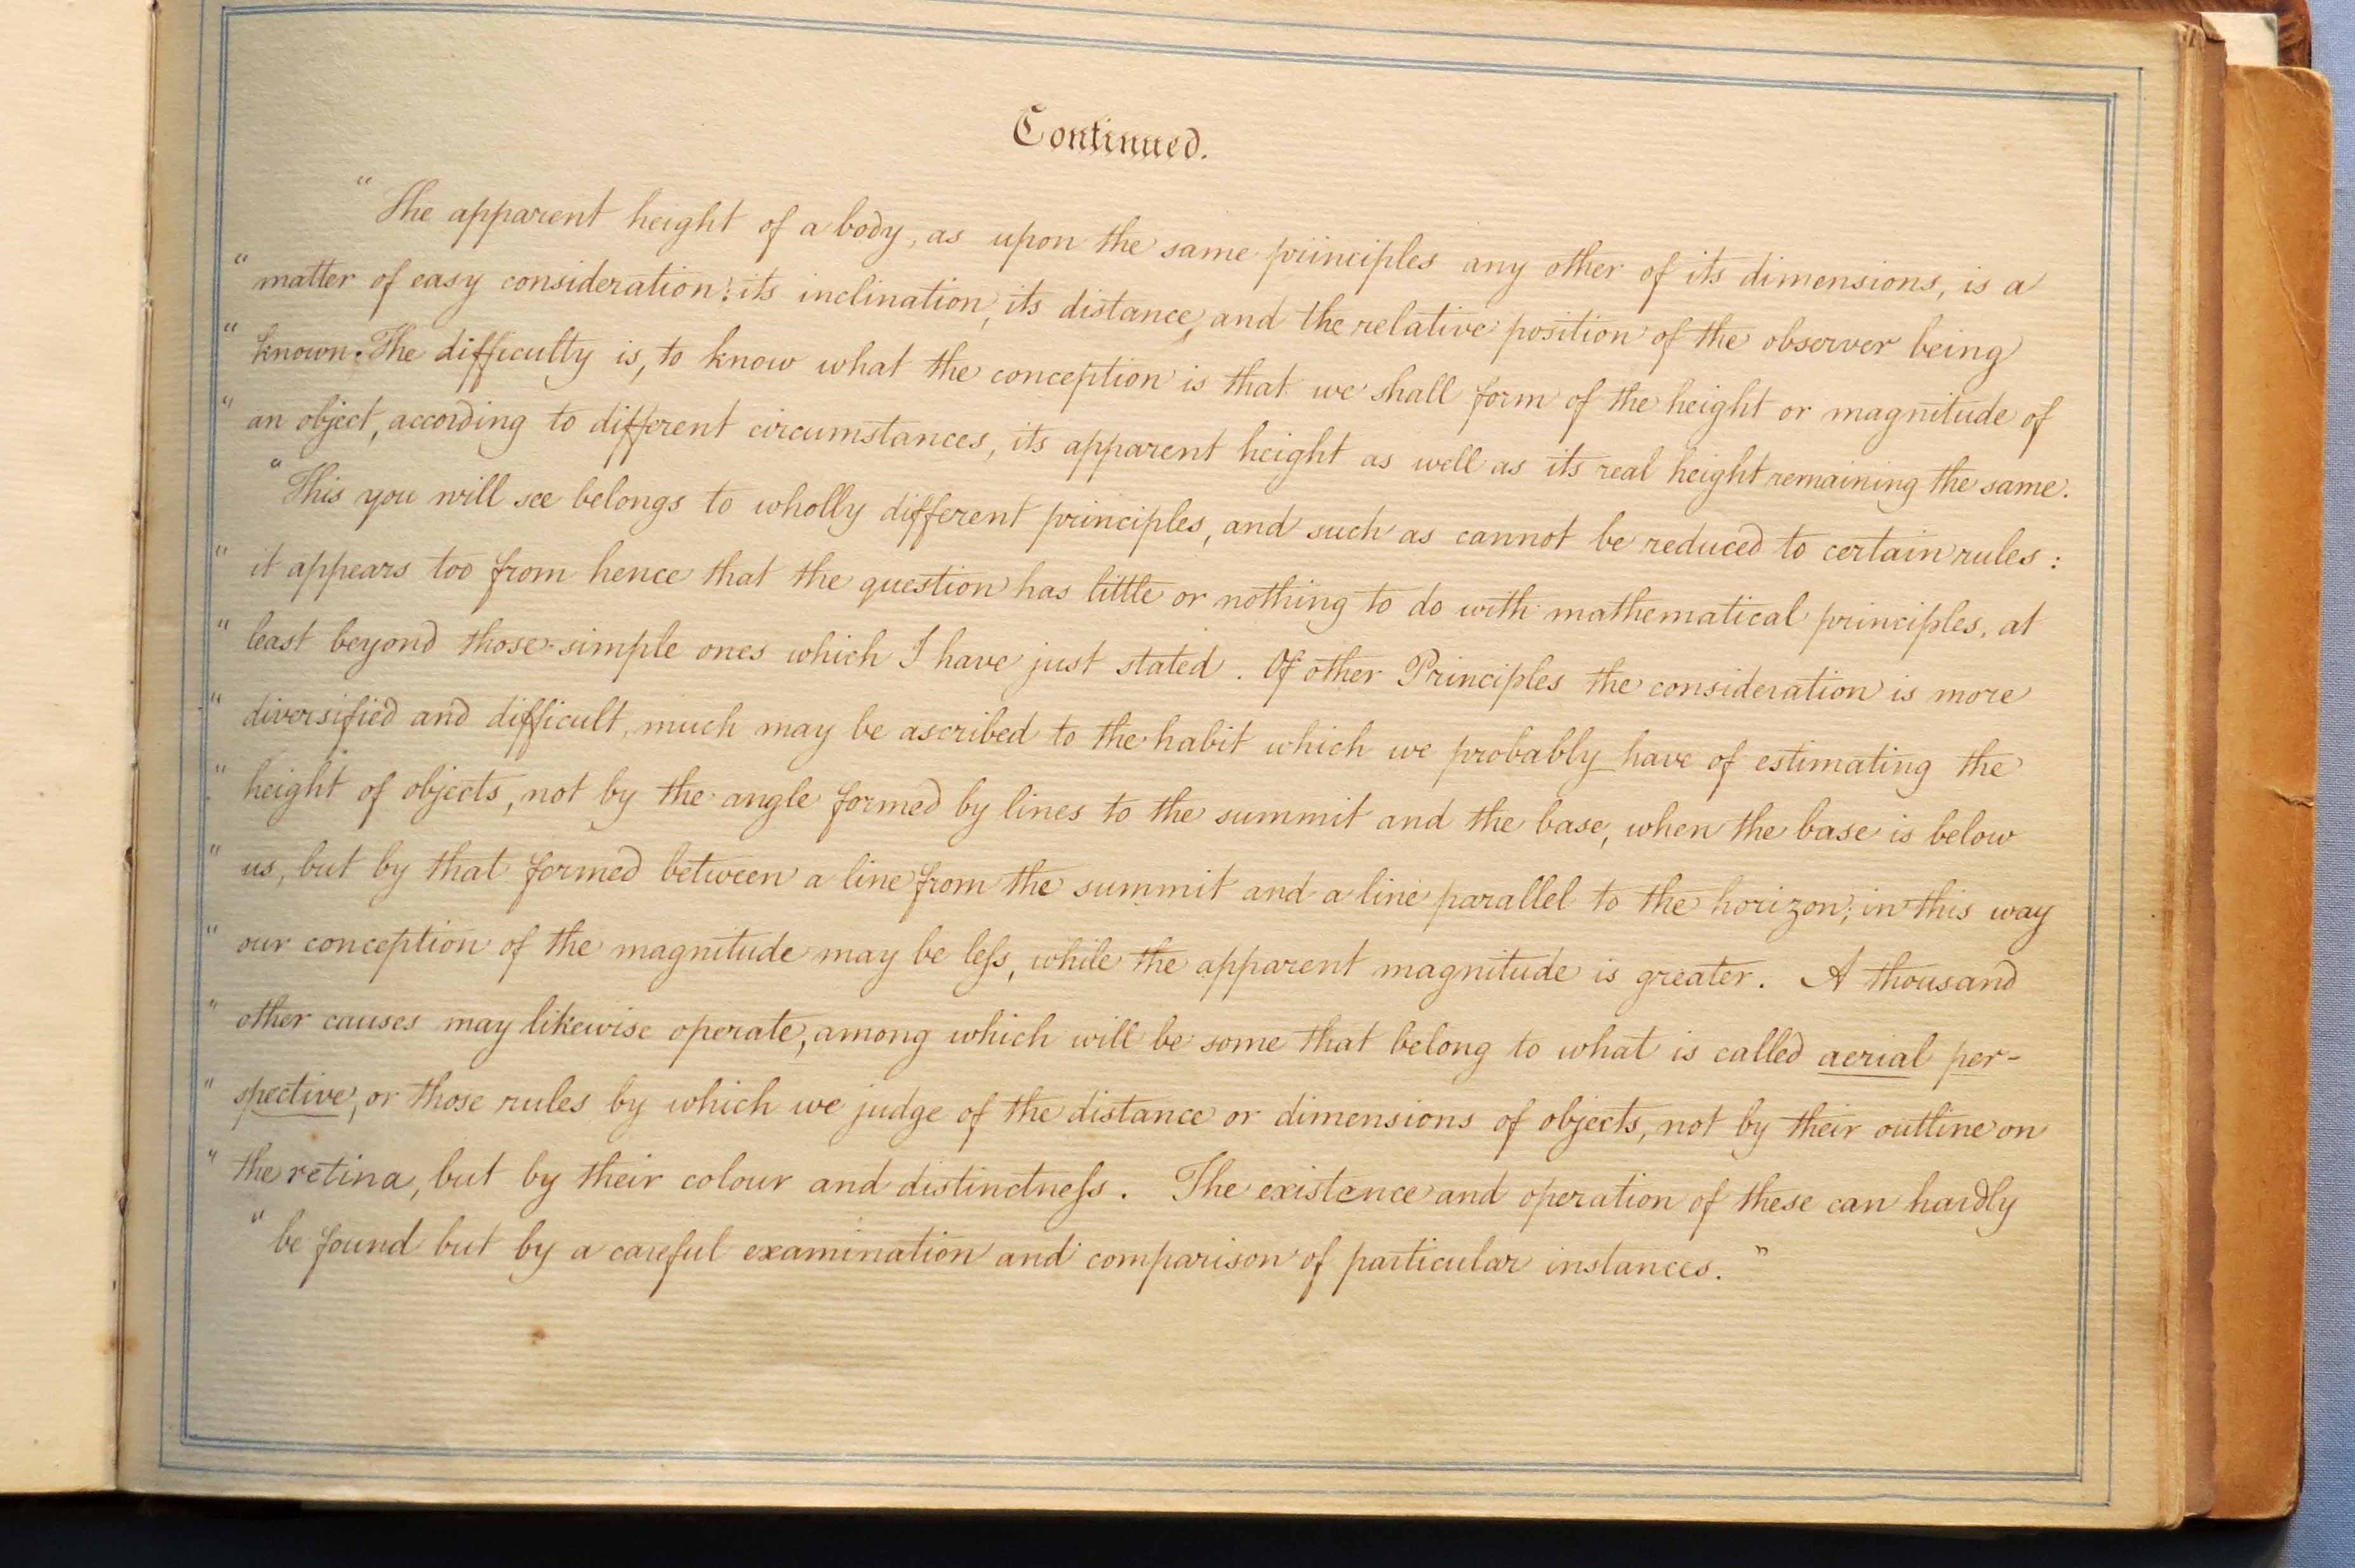 Continued.
“ The apparent height of a body, as upon the same principles any other of its dimensions, is a
“ matter of easy consideration; its inclination, its distance, and the relative position of the observer being
“ known. The difficulty is, to know what the conception is that we shall form of the height or magnitude of
“ an object, according to different circumstances, its apparent height as well as its real height remaining the same.
“ This you will see belongs to wholly different principles, and such as cannot be reduced to certain rules :
“ it appears too from hence that the question has little or nothing to do with mathematical principles, at
“ least beyond those simple ones which I have just stated. Of other Principles the consideration is more
“ diversified and difficult, much may be ascribed to the habit which we probably have of estimating the
“ height of objects, not by the angle formed by lines to the summit and the base, when the base is below
“ us, but by that formed between a line from the summit and a line parallel to the horizon; in this way
“ our conception of the magnitude may be leſs, while the apparent magnitude is greater. A thousand
“ other causes may likewise operate, among which will be some that belong to what is called aerial per-
“ spective, or those rules by which we judge of the distance or dimensions of objects, not by their outline on
“ the retina, but by their colour and distinctneſs. The existence and operation of these can hardly
“ be found but by a careful examination and comparison of particular instances. ”